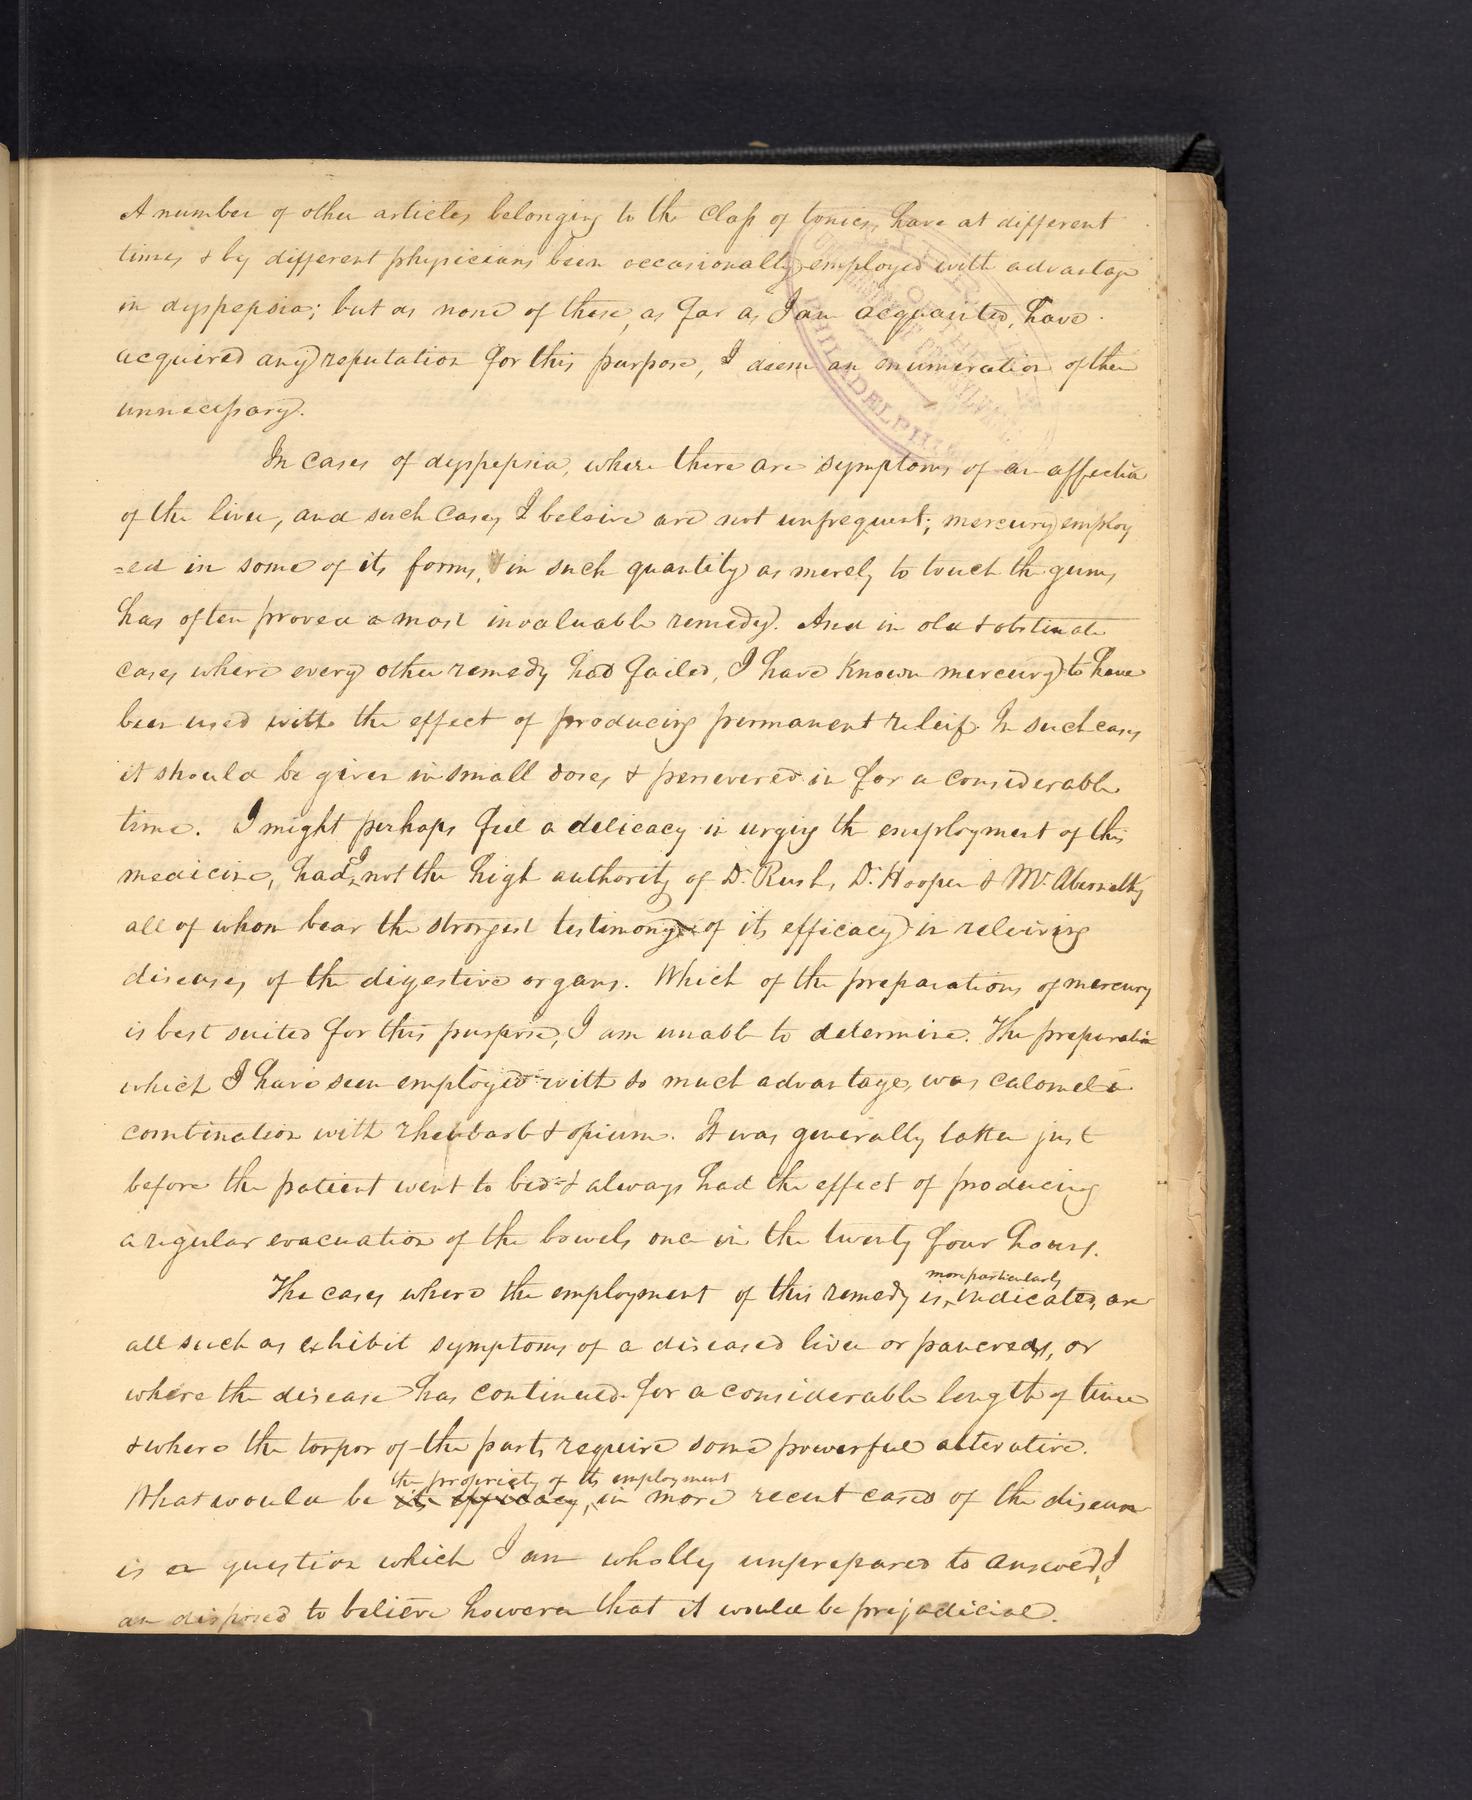 A number of other articles belonging to the class of tonics, have at different
times & by different physicians been occasionally employed with advantage
in dyspepsia; but as none of these, as far as I am acquainted, have
acquired any reputation for this purpose, I deem an enumeration of them
unnecessary.
In cases of dyspepsia, where there are symptoms of an affection
of the liver, and such cases I beleive are not unfrequent; mercury employ
=ed in some of its forms, & in such quantity as merely to touch the gums,
has often proved a most invaluable remedy. And in old & obstinate
cases where every other remedy had failed, I have known mercury to have
been used with the effect of producing permanent releif. In such cases
it should be given in small doses & persevered in for a considerable
time. I might perhaps feel a delicacy in urging the employment of this
medicine, had I not the high authority of Dr. Rush, Dr. Hooper & Mr. Abernethy
all of whom bear the strongest testimony of its efficacy in releiving
diseases of the digestive organs. Which of the preparations of mercury
is best suited for this purpose, I am unable to determine. The preparation
which I have seen employed with so much advantage, was calomel in
combination with rheubarb & opium. It was generally taken just
before the patient went to bed & always had the effect of producing
a regular evacuation of the bowels once in the twenty four hours.
more particularly
The cases where the employment of this remedy is, indicated, are
all such as exhibit symptoms of a diseased liver or pancreas, or
where the disease has continued for a considerable length of time
& where the torpor of the parts require some powerful alterative.
the propriety of its employment
What would be its efficacy, in more recent cases of the disease
is a question which I am wholly unprepared to answer, I
am disposed to believe however that it would be prejudicial.
LIBRARY
OF THE
UNIVERSITY OF PENNSYLVANIA
PHILADELPHIA